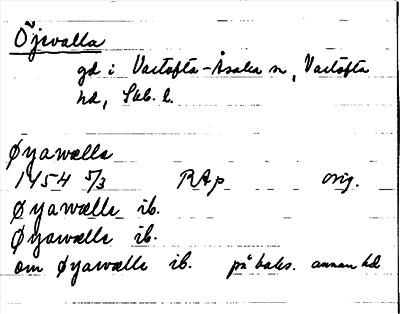 Öjavalla
gd i Vartofta-Åsaka sn, Vartofta
hd, Skb. l.
Øyawælle
1454 5/3 RAp orig.
Øyawælle ib.
Øyawælle ib.
om Øyawælle ib. på baks. annan hd